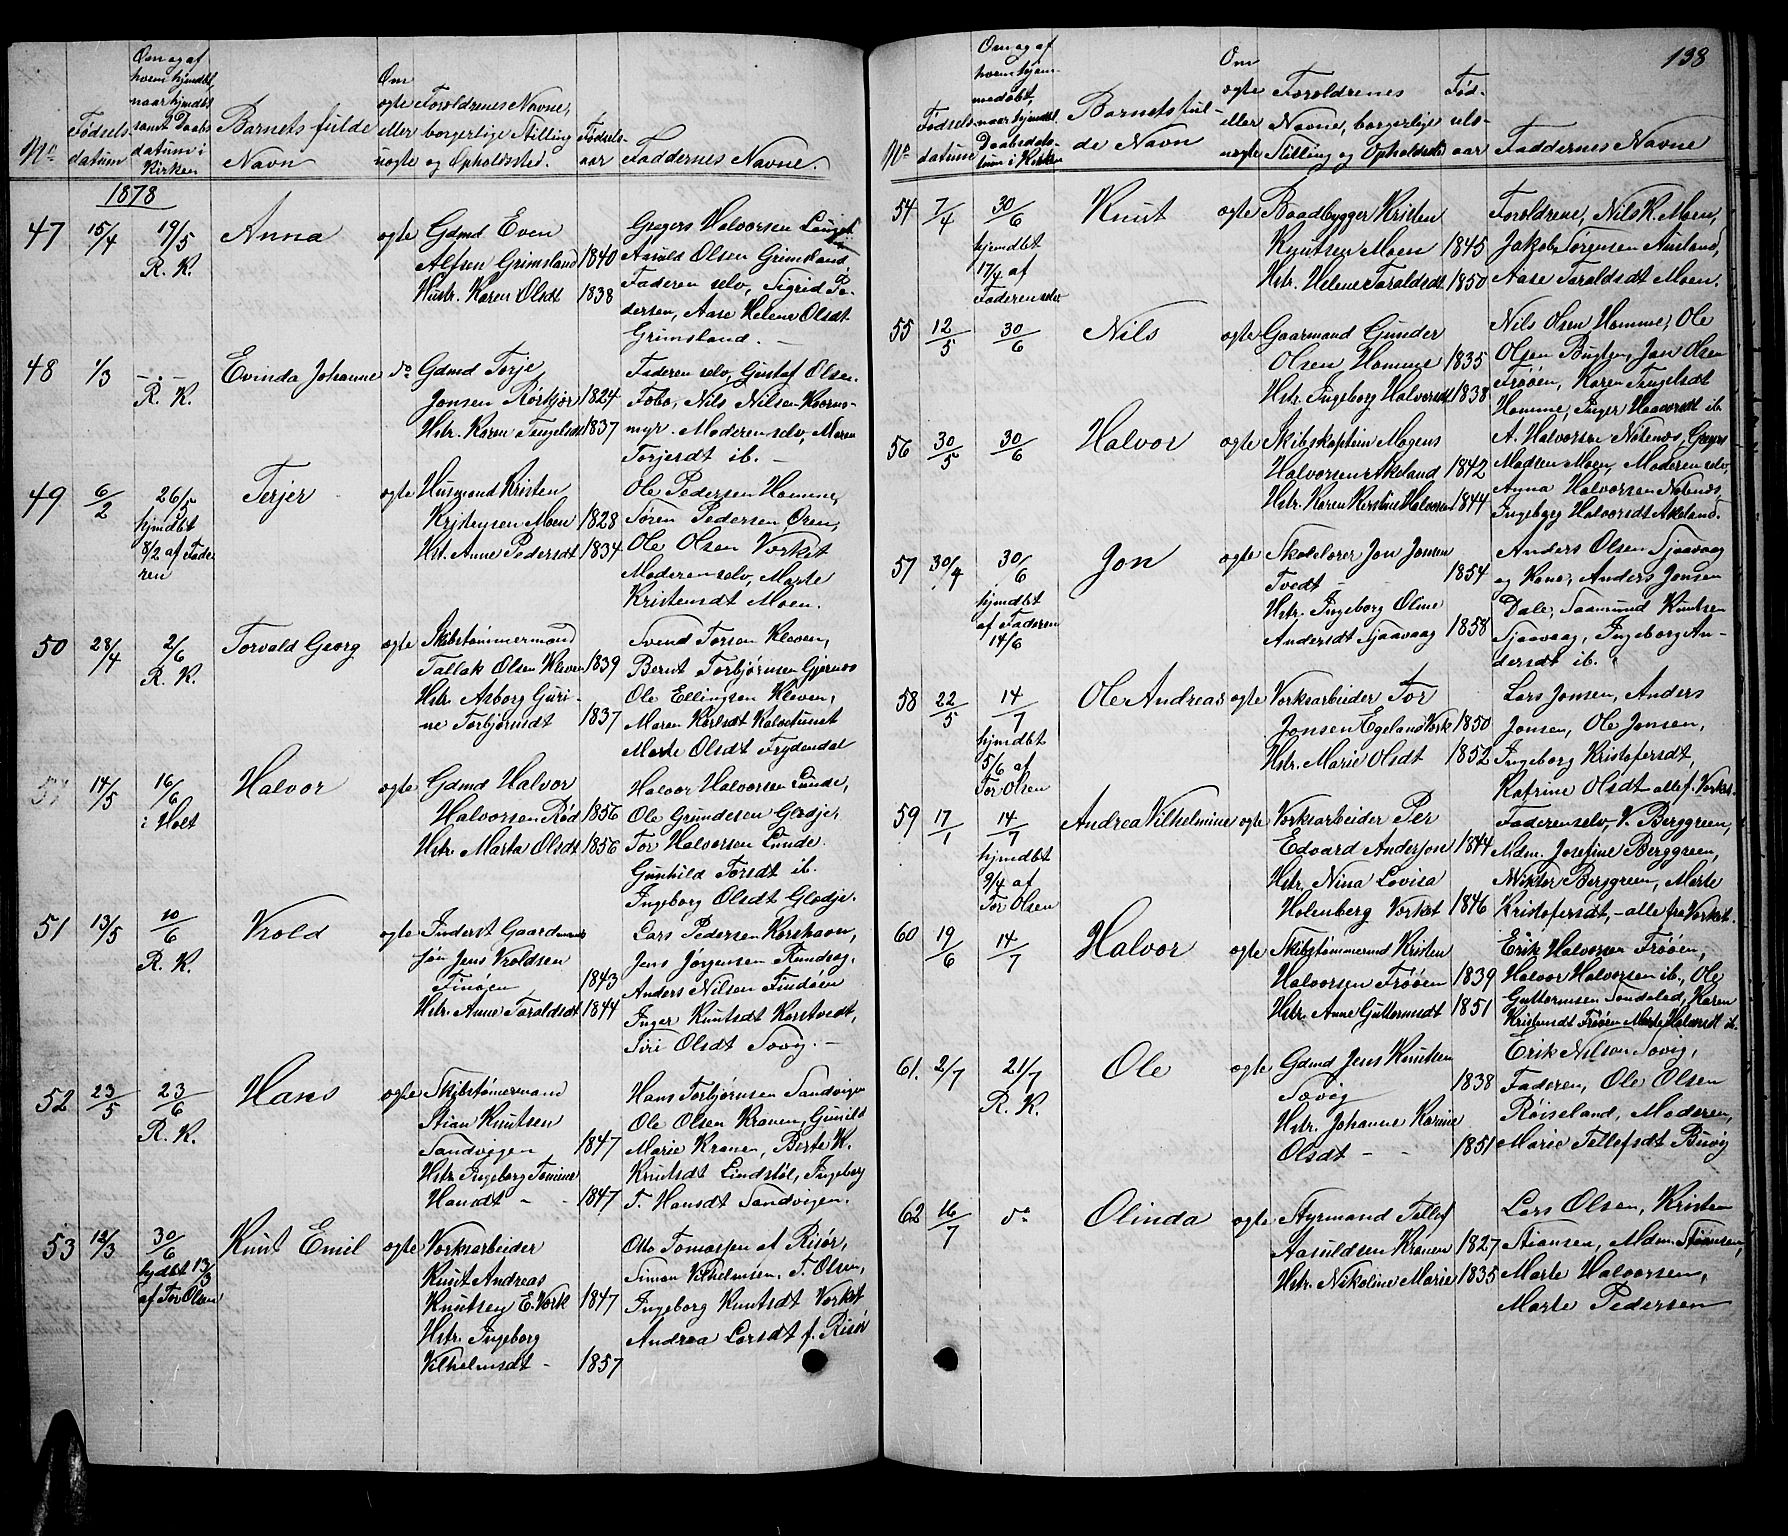 138
Om og af
hvem hjemdøbt,
naar hjemdøbt
samt Daabs
datum i
Kirken
No
Fødsels
datum
Barnets fulde
Navn
Om
ægte
eller
uægte
Forældrenes Navne,
borgerlige Stilling
og Opholdssted.
Fødsels
aar
Faddernes Navne.
1878
47 15/4 19/5
R. K.
Anna
ægte
Gdmd Even
Alfsen Grimsland 1840
Hustr. Karen Olsdt 1838
Gregers Halvorsen
Asuld Olsen Grimsland,
Faderen selv, Sigrid Pe-
dersen, Aase Helene Olsdt
Grimsland. -
48 1/3 - . -
R. K.
Evinda Johanne
do
Gdmd Torje
Jonsen Rørkjær 1824
Hstr. Karen Tengelsdt 1837
Faderen selv, Gustaf Olsen
Fobo, Nils Nilsen Kaarns-
myr. Moderen selv, Maren
Torjersdt ib. -
49 6/2 26/5
hjmdbt
8/2 af Fade
ren
Terjer
ægte
Husmand Kristen
Kristensen Moen 1828
Hst. Anne Pedersdt 1834
Ole Pedersen Homme,
Søren Pedersen Oren,
Ole Olsen Vorket
Moderen selv, Marte
Kristensdt Moen.
50 28/4 2/6
R. K.
Torvald Georg
ægte
Skibstømmermand
Tallak Olsen Kleven 1839
Hstr Asborg Guri-
ne Torbjørnsdt 1837
Svend Torsen Kleven,
Bernt Torbjørnsen Gjernes
Ole Ellingsen Kleven,
Maren Karlsdt
Marte Olsdt Frydendal
51 14/5 16/6
i Holt
Halvor
ægte
Gdmd Halvor
Halvorsen Rød 1856
Hstr. Marta Olsdt 1856
Halvor Halvorsen Lunde,
Ole Grundesen Glødje,
Tor Halvorsen Lunde.
Gunhild Torsdt ib.
Ingeborg Olsdt Glødje.
51 13/5 10/6
R. K.
Vrold
ægte
Inderst Gaardmands
søn Jens Vroldsen
Finøen 1843
Hstr. Anne Taraldsdt 1844
Lars Pedersen Korshavn,
Jens Jørgensen Rundsag,
Anders Nilsen Findøen
Inger Knutsdt Korstvedt,
Siri Olsdt Savig. -
52 23/5 23/6
R. K.
Hans
ægte
Skibstømermand
Stian Knutsen
Sandvigen 1847
Hstr Ingeborg Tomine
Hansdt - - 1847
Hans Torbjørnsen Sandvigen
Ole Olsen Kranen, Gunild
Marie Kranen, Berte K.
Knutsdt Lindstøl, Ingeborg
T. Hansdt Sandvigen.
53 12/3 30/6
hjdbt 13/3
af Tor Olsen
Knut Emil
ægte
Værksarbeider
Knut Andreas
Knutsen E. Værk 1847
Hstr. Ingeborg
Vilhelmsdt - 1857
Otto Tomassen af Risør,
Simon Vilhelmsen, T. Olsen,
Ingeborg Knutsdt Vorket
Andrea Larsdt f. Risør
No
Fødsels
datum
Om og af
hvem hjem-
medøbt,
naar hjemdbt.
Daabsda-
tum i Kirken
Barnets ful-
de Navn
Om
ægte
eller
uægte
Forældrenes
Navne, borgerlige
Stilling og Opholdssted
Fød-
sels-
aar
Faddernes Navne
54 7/4 30/6
hjmdbt
17/4 af
Faderen selv
Knut
ægte
Baadbygger Kristen
Knutsen Moen 1845
Hstr. Helene Taraldsdt 1850
Forældrene, Nils K. Moen,
Jakob Tørgensen Ausland,
Aase Taraldsdt Moen.
55 12/5 30/6
Nils
ægte
Gaarmand Gunder
Olsen Homme 1835
Hstr. Ingeborg Halvorsdt 1838
Nils Olsen Homme, Ole
Olsen Bugten, Jon Olsen
Frøøen, Karen Tengelsdt
Homme, Inger Haavorsdt ib.
56 30/5 30/6
Halvor
ægte
Skibskaptein Mogens
Halvorsen Akeland 1842
Hstr. Karen Kirstine Halvorsen 1844
A. Halvorsen Nøtenæs, Gregers
Madsen Moen, Moderen selv,
Anna Halvorsen Nøtenæs
Ingeborg Halvorsdt Akeland.
57 30/4 30/6
hjmdbt
af Faderen
14/6
Jon
ægte
Skolelærer Jon Jonsen
Tvedt - 1854
Hstr. Ingeborg Oline
Andersdt Sjaavaag 1858
Anders Olsen Sjaavaag
og Kone, Anders Jonsen
Dale, Saamund Knutsen
Sjaavaag, Ingeborg An-
dersdt ib.
58 22/5 14/7
hjmdbt
5/6 af
Tor Olsen
Ole Andreas
ægte
Værksarbeider Tor
Jonsen Egelands Værk 1850
Hstr. Marie Olsdt 1852
Lars Jonsen, Anders
Jonsen, Ole Jonsen,
Ingeborg Kristofersdt,
Katrine Olsdt alle f. Værket.
59 17/1 14/7
hjmdbt
9/4 af
Tor Olsen
Andrea Vilhelmine
ægte
Værksarbeider Per
Edvard Anderson 1844
Hstr. Nina Lovisa
Holenberg Vorket 1846
Faderen selv, V. Berggreen,
Mdm. Josefine Berggreen,
Wiktor Berggreen, Marte
Kristofersdt, - alle fra Værket.
60 19/6 14/7
Halvor
ægte
Skibstømmermd Kristen
Halvorsen Frøøen 1839
Hstr Anne Guttormsdt 1851
Erik Halvorsen Frøøen,
Halvor Halvorsen ib., Ole
Guttormsen Søndeled, Karen
Kristensdt Frøøen Marte Halvorsdt ib.
61. 2/7 21/7
R. K.
Ole
ægte
Gdmd Jens Knutsen
Savig 1838
Hstr. Johanne Karine
Olsdt - - 1851
Erik Nilsen Savig,
Faderen, Ole Olsen
Røiseland, Moderen,
Marie Tellefsdt Buvig
62 16/7 do
Olinda
ægte
Styrmand Tellef
Aasuldsen Kranen 1827
Hstr. Nikoline Marie 1835
Lars Olsen, Kristen
Stiansen, Mdm. Stiansen,
Marte Halvorsen,
Marte Pedersen